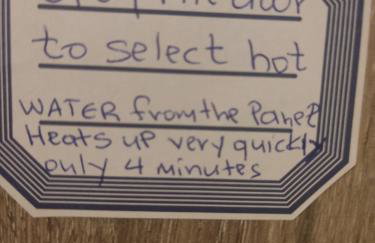 to select hot
WATER from the Panel
Heats up very quickly
only 4 minutes